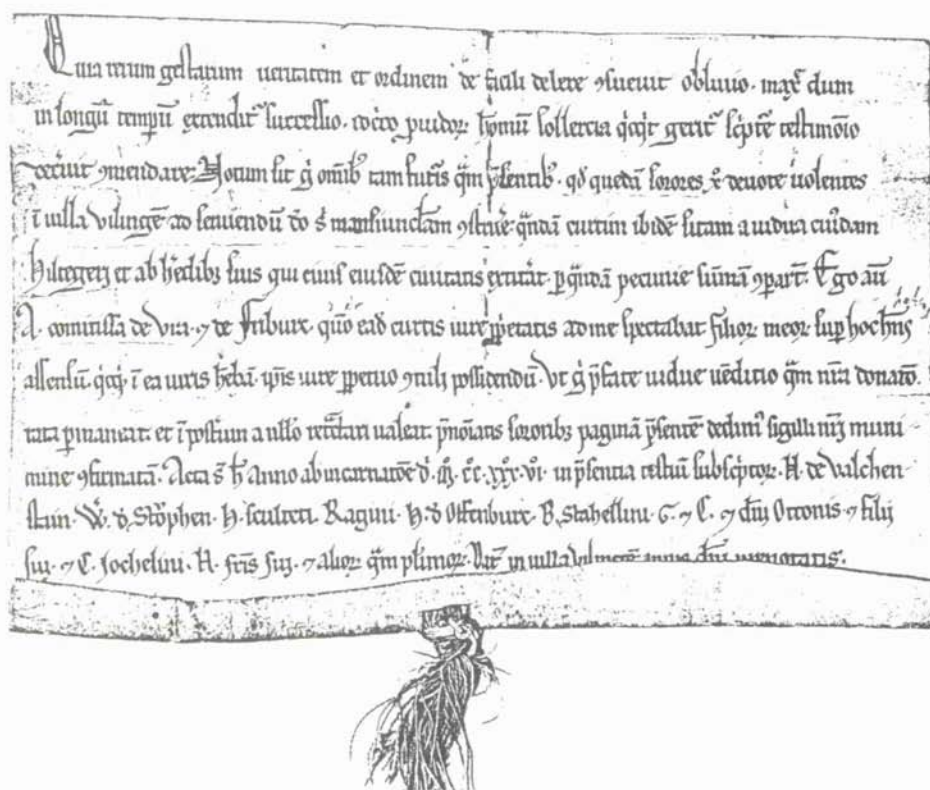 Quia rerum gestarum ueritatem et ordinem de facili delere ꝯsueuit obliuio · maxͤ dum
in longū temp̄ū extendit᷒ successio · ꝓuidoꝝ hoīm̄ sollercia gerit᷒ sc̄pte testimōio
ꝯmendare · Notum sit gͥ om̄ibꝫ tam futᷓis qᷓm p̄sentibꝫ · qd̄ quedā sorores x̄ deuote uolentes
ī uilla Vilingē · ad seruiendū dō s̄ mansiunclam ꝯstrue᷒e · qᷓndā curtim ibidē sitam a uidua cuiᷤdam
Hiltegerj et ab h̄edibꝫ suis qui ciuis eiusdē ciuitatis extitᷓat · ꝑ qᷓndā pecunie sūmā ꝯpart̄ · Ego aū
A · comitissa de Vra · ⁊ de Friburc · qͥuō ead̄ curtis iure ꝓp̄etatis ad me spectabat filioꝝ meoꝝ suꝑ hoc
assensū · ī ea iuris h̄ebā · ip̄is iure ꝑpetuo ꝯtuli possidendū · Vt gͥ p̄fate uidue uēditio qᷓm nr̄a donatō ·
rata ꝑmaneat · et ī posť̄um a ullo ualeat · p̄noīatis sororibꝫ paginā p̄sentē dedimᷤ sigilli nr̄j muni-
mine ꝯfirmatā · Acta s̄ h̄ Anno ab incarnatōe d̄ · M̊ · cͦc · xͦxx · vͦi · in p̄sentia testiū subsc̄ptoꝝ · H · de Valchen-
stain · W̄ · d̄ Stoͮphen · H · sculteti · Ragini · H · d̄ Offenburc · B · Stahellini · G · ⁊ C · ⁊ dn̄j Ottonis · ⁊ filij
suj · ⁊ C · Jochelini · H · fr̄is suj · ⁊ alioꝝ qᷓm pl̄imoꝝ · Dat̄ in uilla